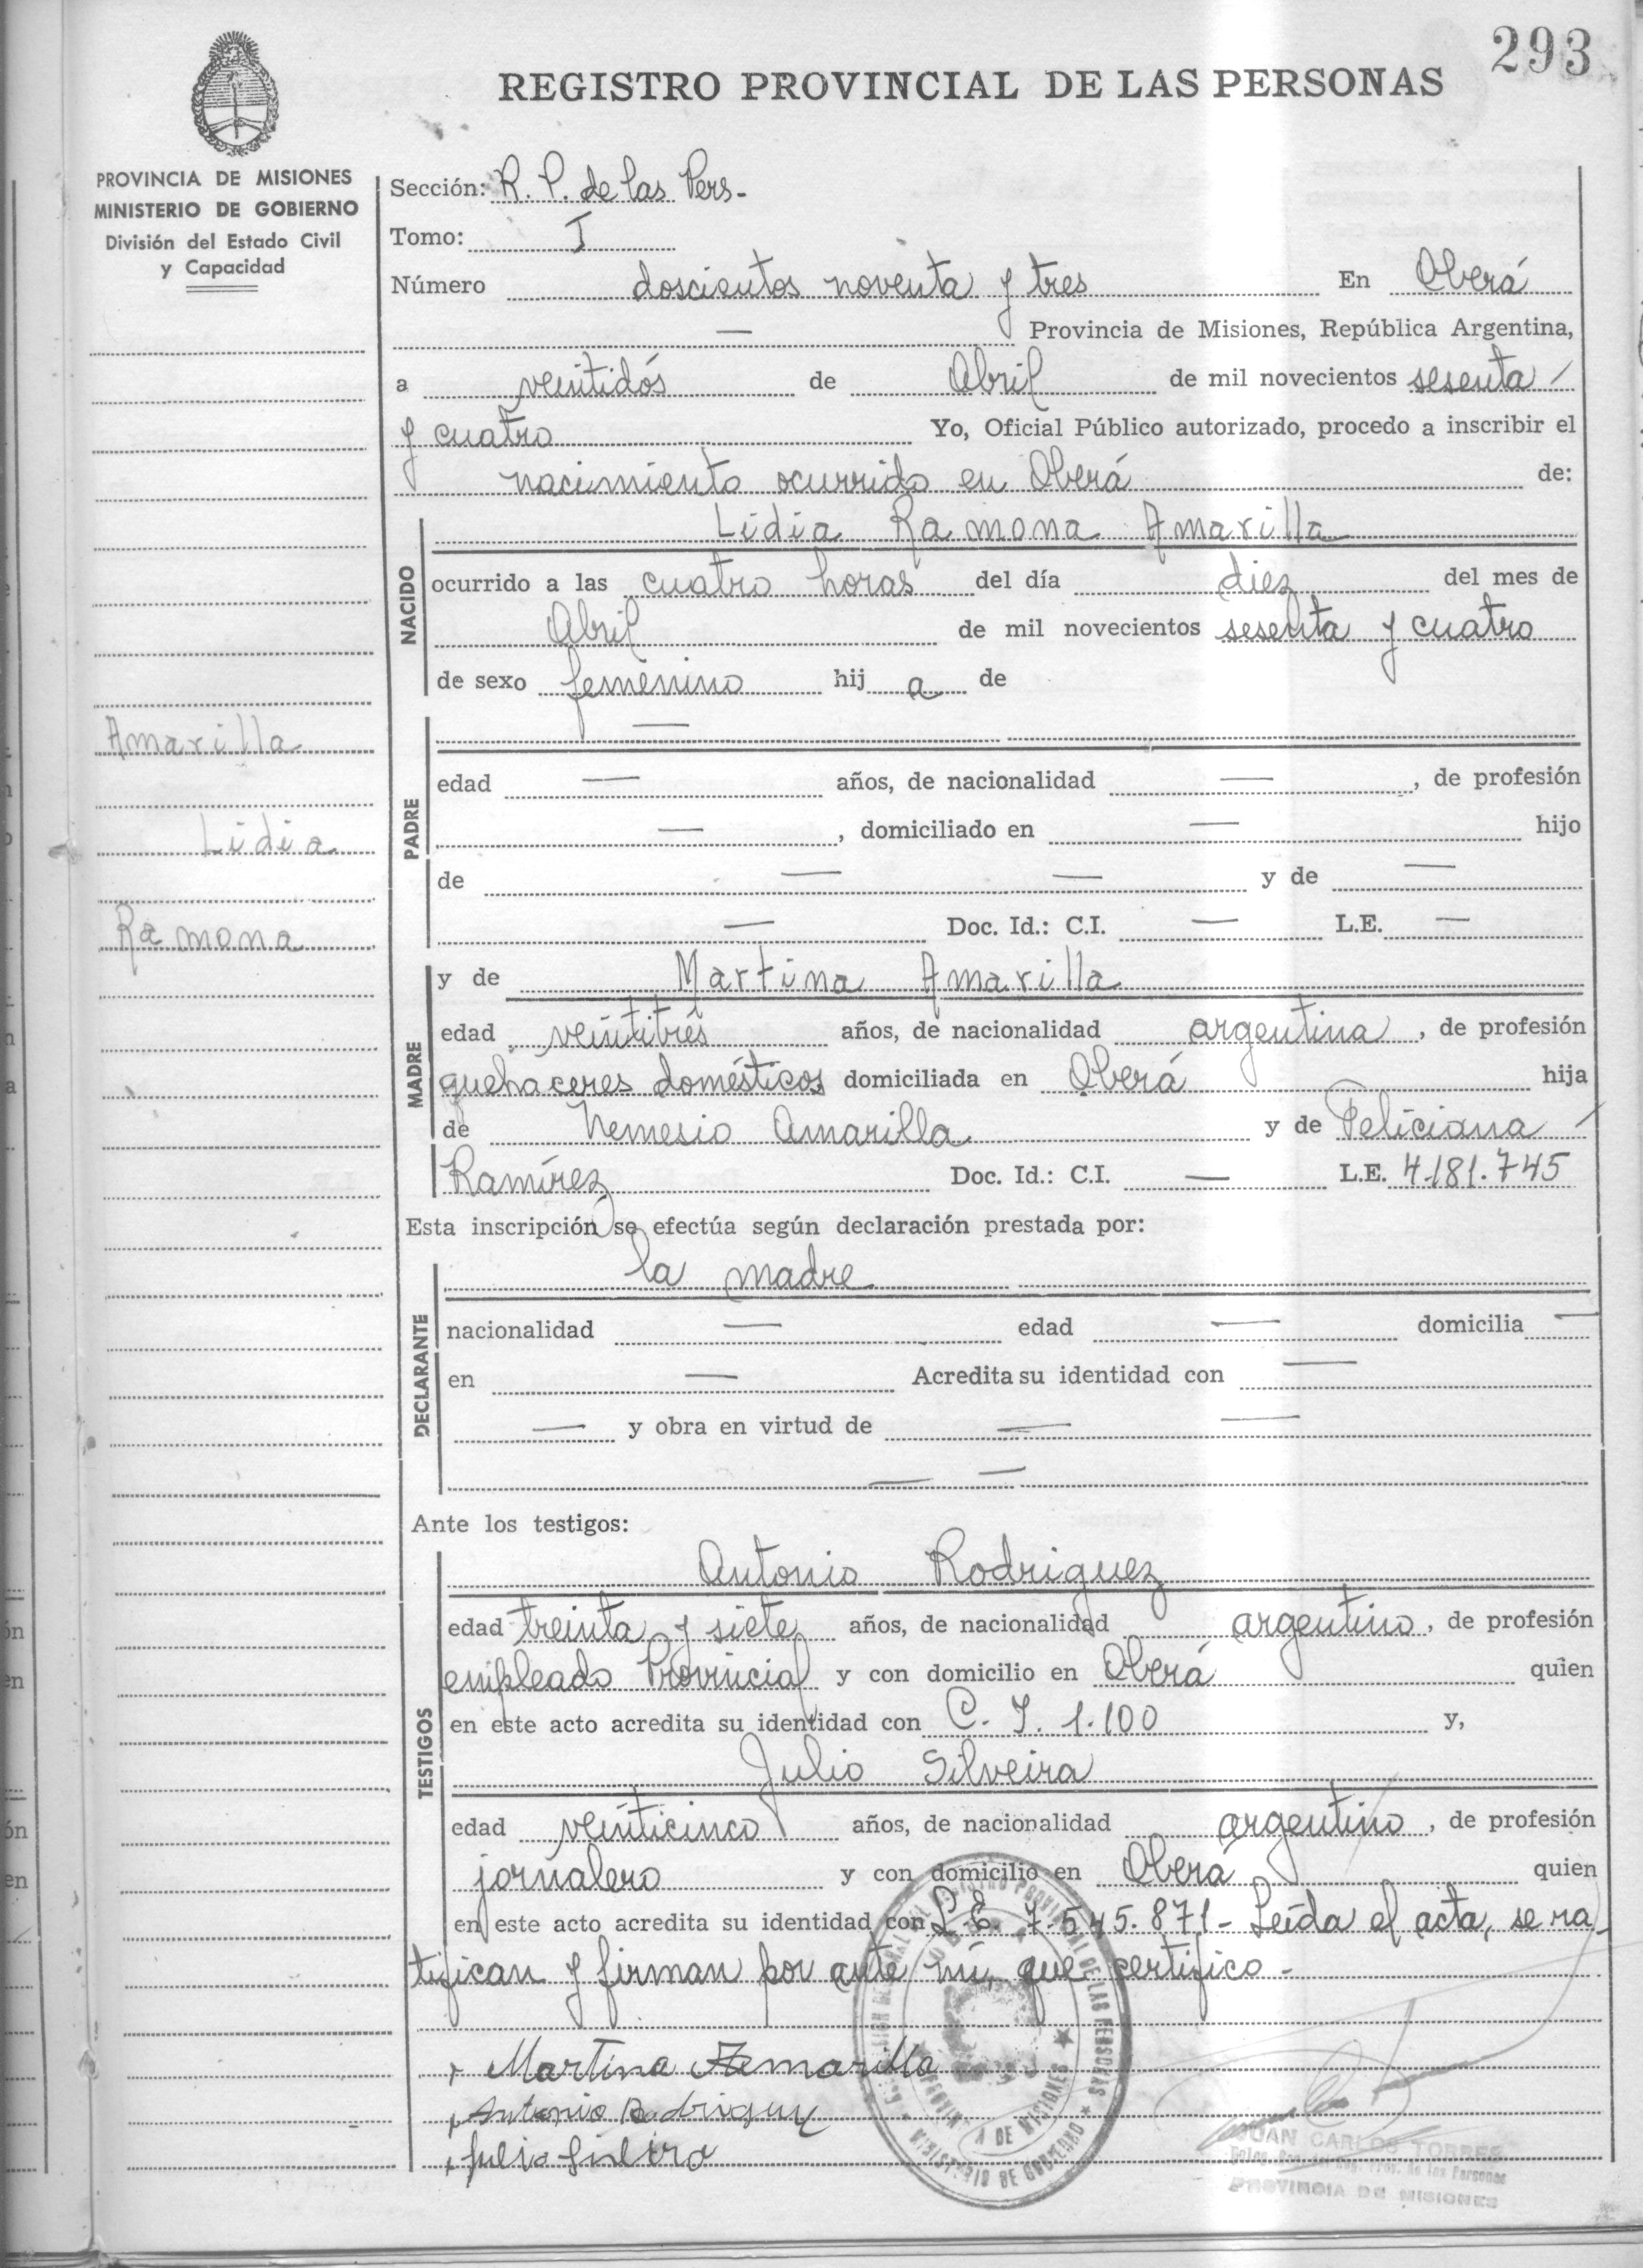 293
REGISTRO PROVINCIAL DE LAS PERSONAS
PROVINCIA DE MISIONES
MINISTERIO DE GOBIERNO
División del Estado Civil
y Capacidad
Sección: R. P. de las Pers-
Tomo: I
Número doscientos noventa y tres En Oberá
— Provincia de Misiones, República Argentina,
a veintidós de Abril de mil novecientos sesenta
y cuatro Yo, Oficial Público autorizado, procedo a inscribir el
nacimiento ocurrido en Oberá de:
NACIDO
Lidia Ramona Amarilla
ocurrido a las cuatro horas del día diez del mes de
Abril de mil novecientos sesenta y cuatro
de sexo femenino hij a de
Amarilla
Lidia
Ramona
PADRE
— 
edad — años, de nacionalidad —, de profesión
—, domiciliado en — hijo
de — — y de —
— Doc. Id.: C.I. — L.E. —
MADRE
y de Martina Amarilla
edad veintitrés años, de nacionalidad argentina, de profesión
quehaceres domésticos domiciliada en Oberá hija
de Nemesio Amarilla y de Feliciana
Ramírez Doc. Id.: C.I. — L.E. 4.181.745
Esta inscripción se efectúa según declaración prestada por:
DECLARANTE
la madre
nacionalidad — edad — domicilia —
en — Acredita su identidad con —
— y obra en virtud de — —
— —
Ante los testigos:
TESTIGOS
Antonio Rodriguez
edad treinta y siete años, de nacionalidad argentino, de profesión
empleado Provincial y con domicilio en Oberá quien
en este acto acredita su identidad con C. I. 1.100 y,
Julio Silveira
edad veinticinco años, de nacionalidad argentino, de profesión
jornalero y con domicilio en Oberá quien
en este acto acredita su identidad con L.E. 7.545.871- Leída el acta, se ra-
tifican y firman por ante mí, que certifico-
Martina Amarilla
Antonio Rodriguez
Julio
JUAN CARLOS TORRES
de las Personas
PROVINCIA DE MISIONES
PROVINCIAL DE LAS PERSONAS
MINISTERIO DE GOBIERNO
DE MISIONES